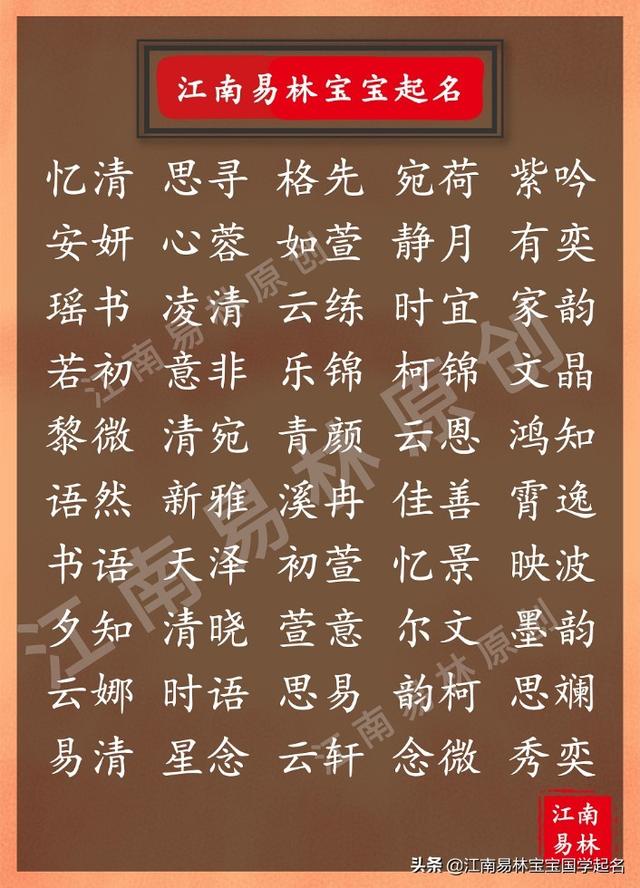 江南易林宝宝起名
忆清 思寻 格先 宛荷 紫吟
安妍 心蓉 如萱 静月 有奕
瑶书 凌清 云练 时宜 家韵
若初 意非 乐锦 柯锦 文晶
黎微 清宛 青颜 云恩 鸿知
语然 新雅 溪冉 佳善 霄逸
书语 天泽 初萱 忆景 映波
夕知 清晓 萱意 尔文 墨韵
云娜 时语 思易 韵柯 思斓
易清 星念 云轩 念微 秀奕
江南易林原创
江南易林原创
江南易林原创
江南
易林
头条 @江南易林宝宝国学起名